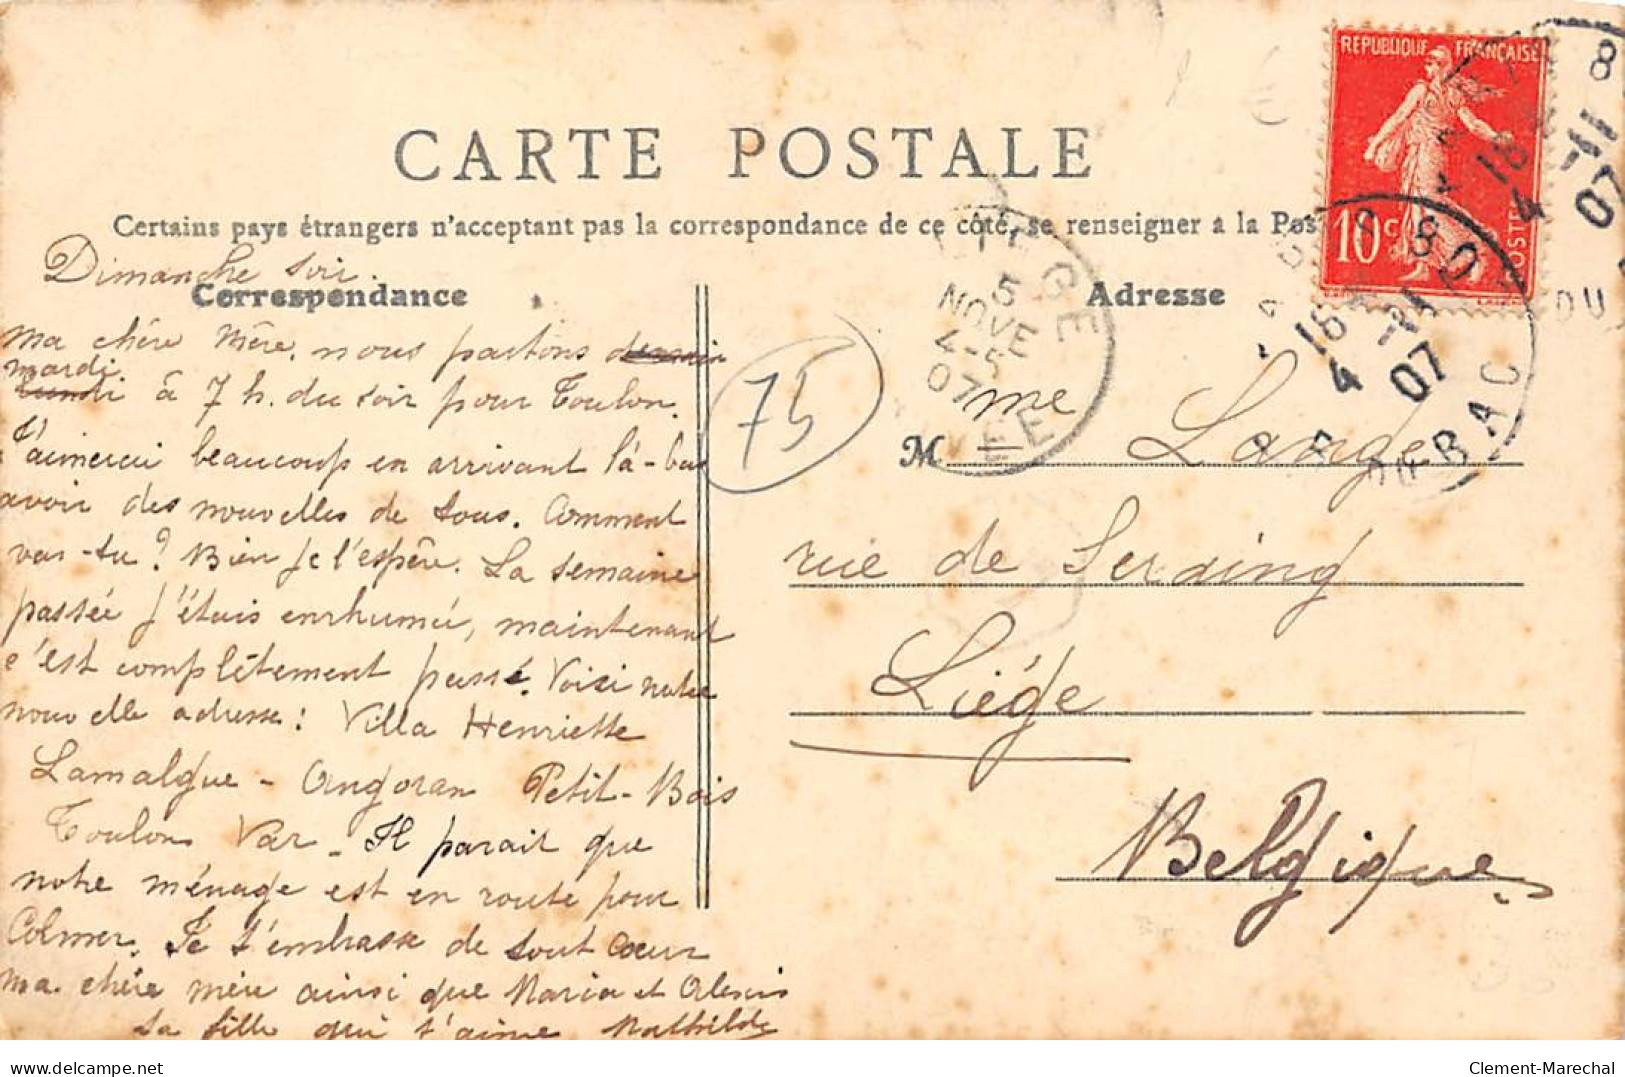 CARTE POSTALE
Certains pays étrangers n'acceptent pas la correspondance de ce côté, se renseigner à la Pos
Correspondance
Adresse
Dimanche soir.
ma chère Mère, nous partons
mardi
lundi à 7 h. du soir pour Toulon.
J'aimerai beaucoup en arrivant là-bas
avoir des nouvelles de tous. Comment
vas-tu? Bien je l'espère. La semaine
passée j'étais enrhumé, maintenant
c'est complètement passé. Voisi notre
nouvelle adresse: Villa Henriette
Lamalgue - Petit-Bois
Toulon Var - Il parait que
notre ménage est en route pour
Je t'embrasse de tout coeur
ma chère mère ainsi que Maria et Alexis
ta fille qui t'aime Mathilde
75
Mme Lange
rue de Seraing
Liége
Belgique
REPUBLIQUE FRANÇAISE
10c
POSTE
LIEGE
5
NOVE
4-5
07
18 8
4 11
07
DU
18
4 11
07
DU BAC
delcampe.net
Clement-Marechal